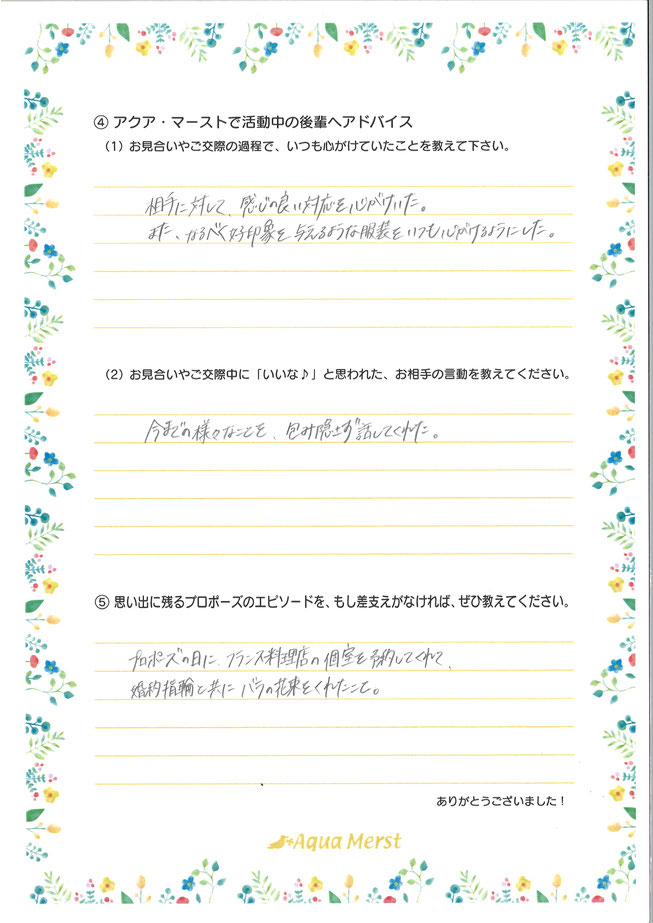 ④ アクア・マーストで活動中の後輩へアドバイス
（1）お見合いやご交際の過程で、いつも心がけていたことを教えて下さい。
相手に対して、感じの良い対応を心がけいた。
また、なるべく好印象を与えるような服装をいつも心がけるようにした。
（2）お見合いやご交際中に「いいな♪」と思われた、お相手の言動を教えてください。
今までの様々なことを、包み隠さず話してくれた。
⑤ 思い出に残るプロポーズのエピソードを、もし差支えがなければ、ぜひ教えてください。
プロポーズの日に、フランス料理店の個室を予約してくれて、
婚約指輪と共にバラの花束をくれたこと。
ありがとうございました！
Aqua Merst